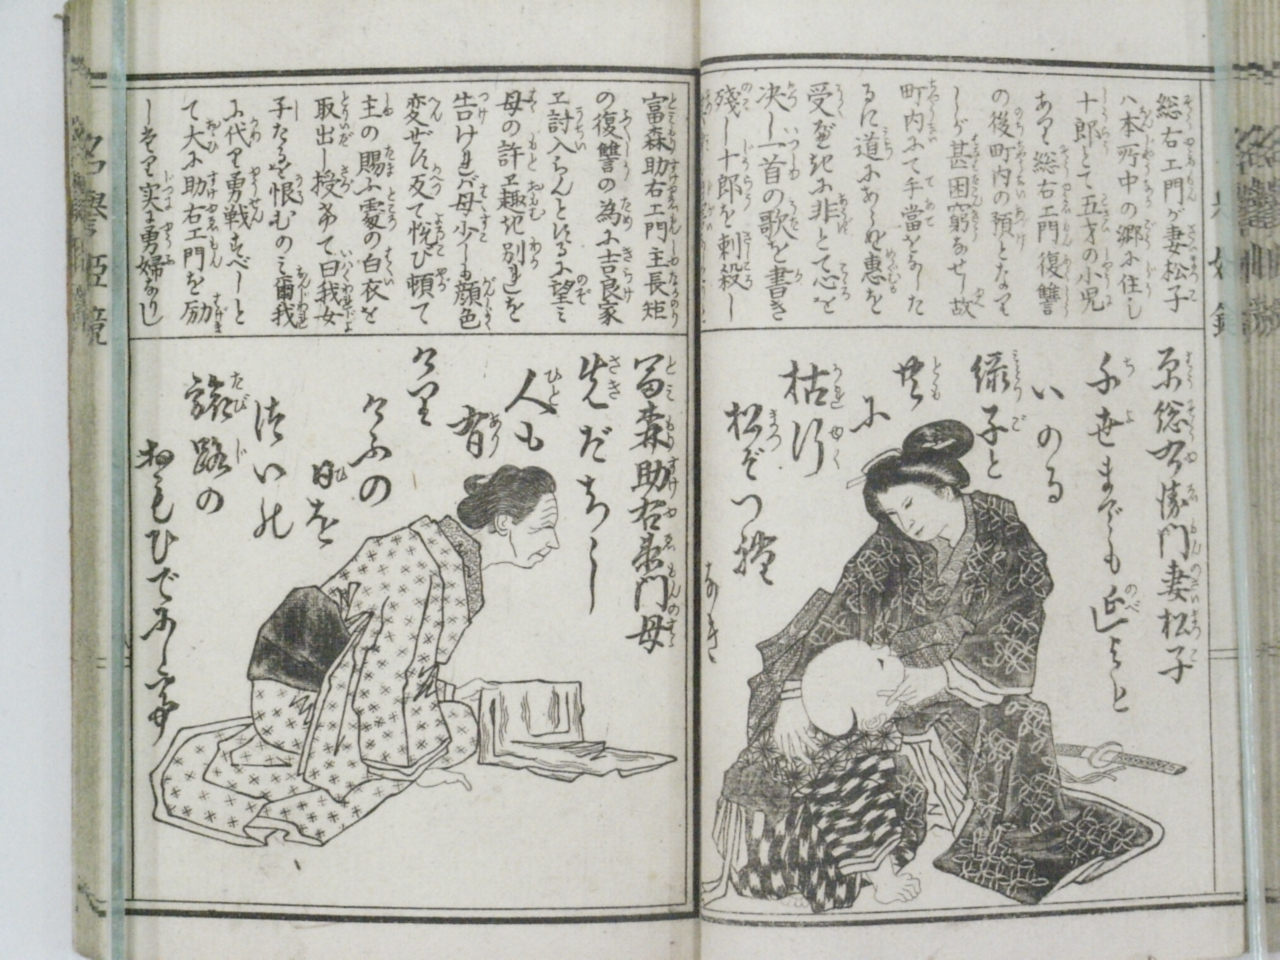 総右エ門が妻松子
八本所中の郷に住し
十郎とて五才の小児
あり総右エ門復讐
の後町内の預となりて
しが甚困窮なせし故
町内にて手當をなした
るに道にあらぬ恵を
受るに非とて心を
决し一首の歌を書き
殘し十郎を刺殺し
原総右衛門妻松子
千世までも延よと
いのる
緑子と
共
に
枯行
松ぞ
富森助右エ門主長矩
の復讐の為に吉良家
エ討入らんとするに望ミ
母の許エ趣き別れを
告ければ母少しも顔色
変ぜず反て悦び頓て
主の賜ふ處の白衣を
取出し授希て曰我女
子たるを恨むのミ爾我
に代り勇戦すべしと
て大に助右エ門を励
しけり実に勇婦なりし
冨森助右衛門母
先だちし
人も
有
けり
けふの
日を
ついの
旅路の
おもひでにして
名譽姫鏡